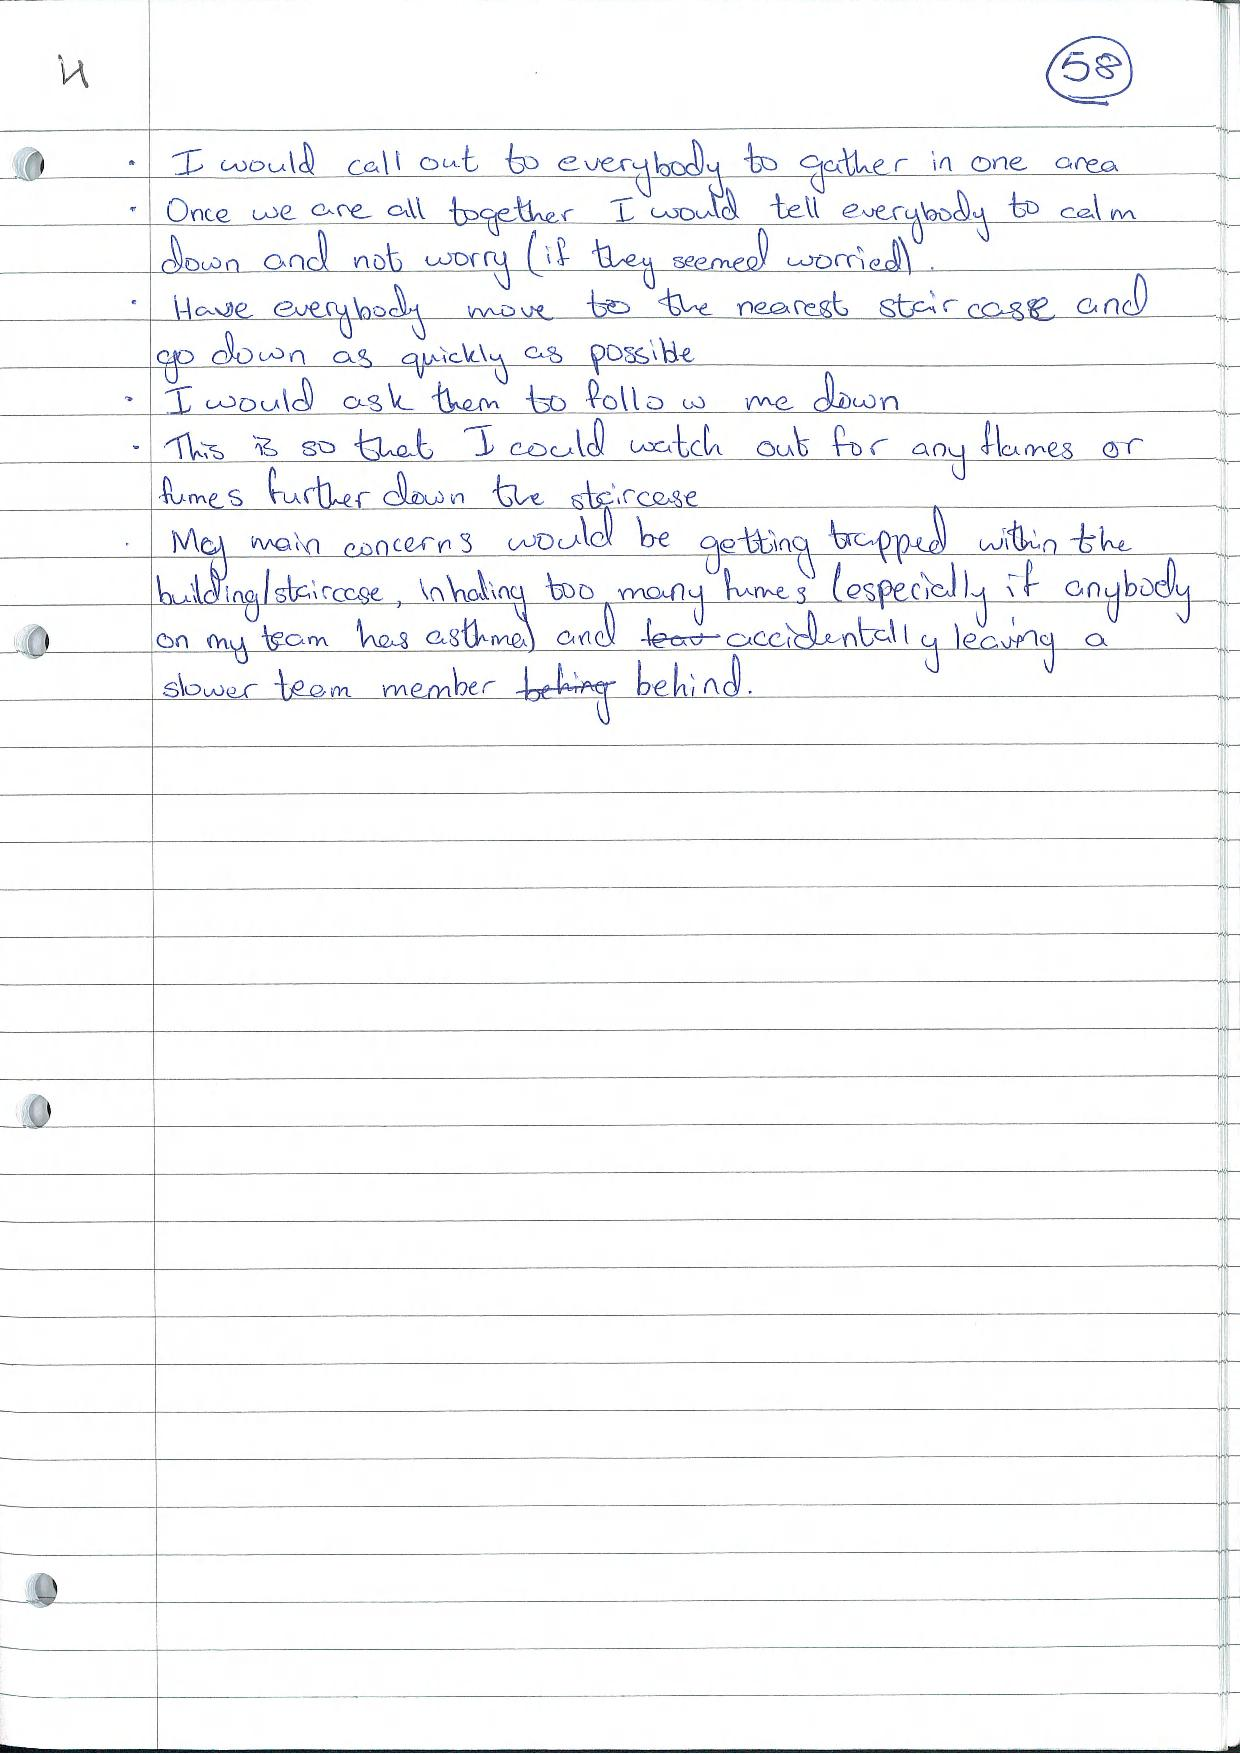 4
58
• I would call out to everybody to gather in one area
• Once we are all together I would tell everybody to calm
down and not worry (if they seemed worried).
• Have everybody move to the nearest staircase and
go down as quickly as possible
• I would ask them to follow me down
• This is so that I could watch out for any flames or
fumes further down the staircase
• My main concerns would be getting trapped within the
building/staircase, inhaling too many fumes (especially if anybody
on my team has asthma) and leav accidentally leaving a
slower team member behing behind.